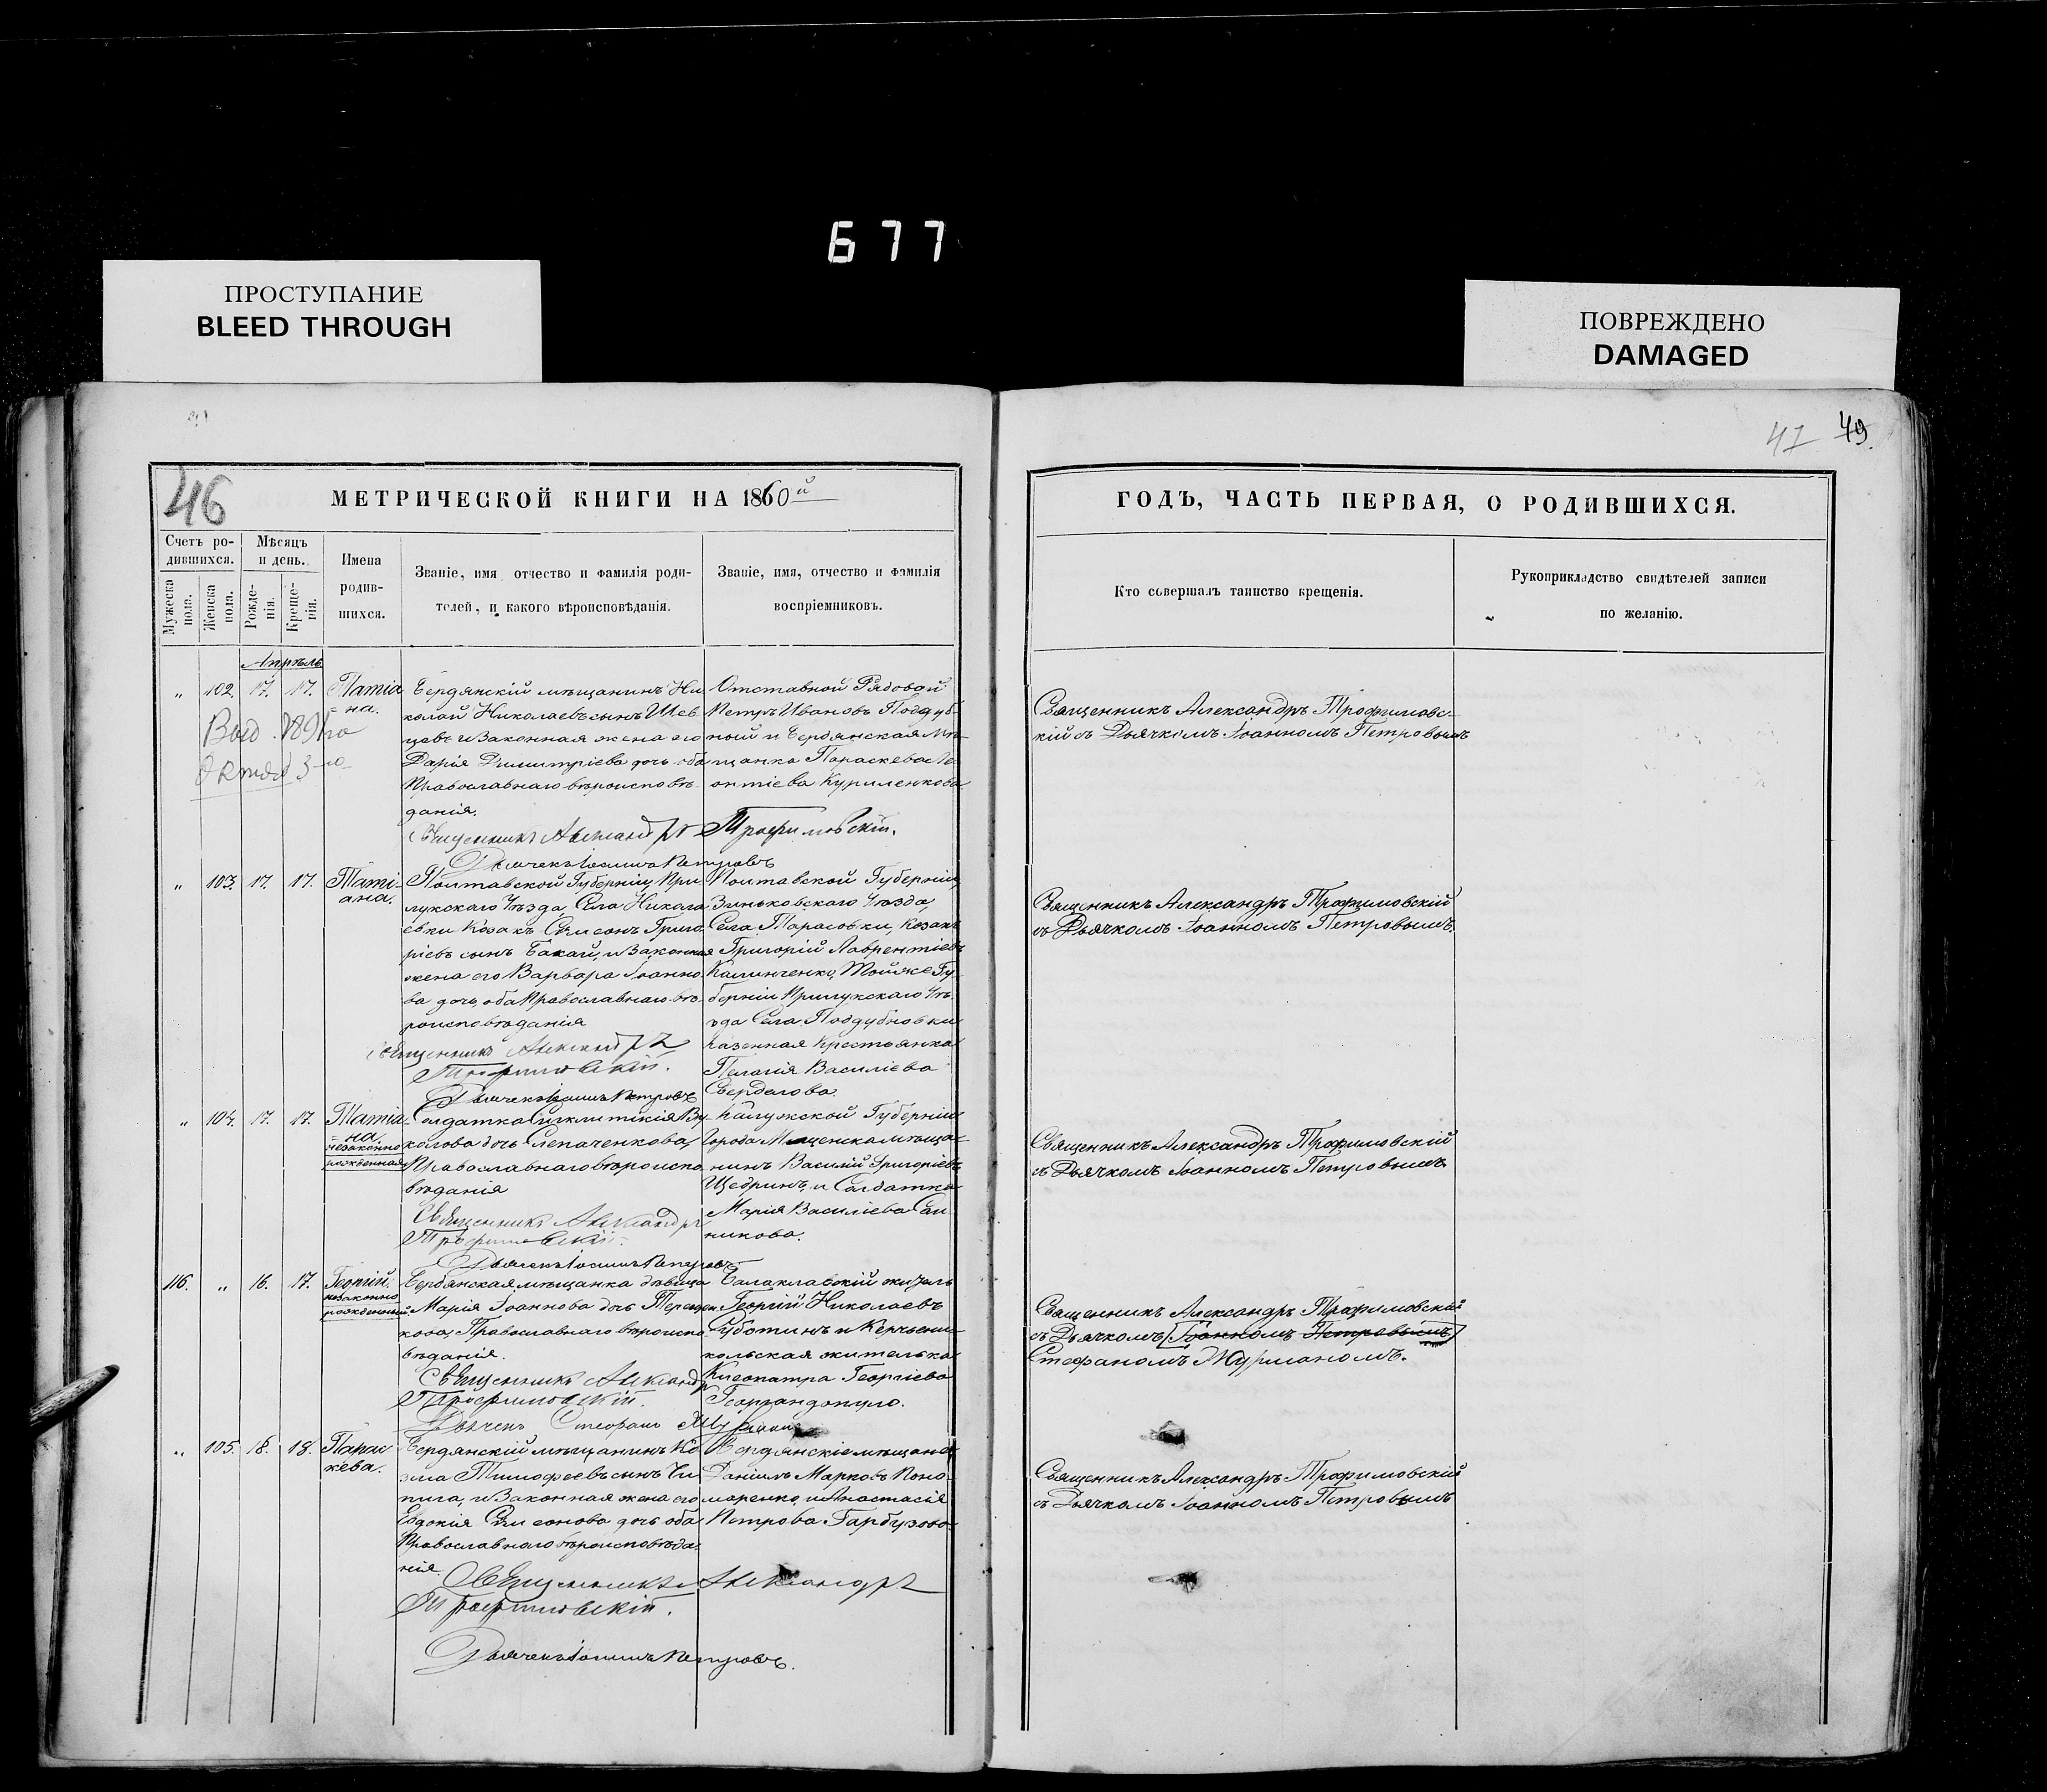 677
ПРОСТУПАНИЕ
BLEED THROUGH
ПОВРЕЖДЕНО
DAMAGED
46
МЕТРИЧЕСКОЙ КНИГИ НА 1860й
Счетъ ро-
дившихся.
Мужеска
пола.
Женска
пола.
Мѣсяцъ
и день.
Рожде-
нія.
Креще-
нія.
Имена
родив-
шихся.
Званіе, имя отчество и фамилія роди-
телей, и какого вѣроисповѣданія.
Званіе, имя, отчество и фамилія
воспріемниковъ.
Апрѣль
„ 102. 17. 17.
Татіа
-на.
Выд. 1891го
Октяб 3-го
Бердянскій мѣщанинъ Ни
колай Николаевъ сынъ Шев
цовъ и Законная жена его
Дарія Димитріева дочь оба
Православнаго вѣроисповѣ
данія.
Отставной Рядовой
Петръ Ивановъ Поддуб-
ный и Бердянская Мѣ-
щанка Параскева Ле
онтіева Куриленкова
Священникъ Александръ Трофимовскій.
Дьячекъ Іоаннъ Петровъ
„ 103. 17. 17.
Таті-
ана.
Полтавской Губерніи При
лукскаго Уѣзда Села Никола
евки Козакъ Сѵмеонъ Григо
ріевъ сынъ Бакай, и Законная
жена его Варвара Іоанно
ва дочь, оба Православнаго вѣ-
роисповѣданія
Священникъ Александръ
Трофимовскій.
Дьячекъ Іоаннъ Петровъ
Полтавской Губерніи
Зиньковскаго Уѣзда,
Села Тарасовки, Козакъ
Григорій Лаврентіевъ
Калинченко, Тойже Гу-
берніи Прилукскаго Уѣ
зда Села Поддубновки
Казенная Крестьянка
Пелагія Василіева
Свердлова.
„ 104. 17. 17.
Татіа-
-на.
незаконно
рожденная
Солдатка Сѵнклитикія Ву
колова дочь Слепаченкова,
Православнаго вѣроиспо
вѣданія
Священникъ Александръ
Трофимовскій.
Дьячекъ Іоаннъ Петровъ
Калужской Губерніи
Города Мещенска мѣща-
нинъ Василій Григоріевъ
Щедринъ, и Солдатка
Марія Василіева Сан
никова.
116. „ 16. 17.
Георгій.
незаконно
рожденный.
Бердянская мѣщанка дѣвица
Марія Іоаннова дочь Терещен
кова, Православнаго вѣроиспо
вѣданія.
Священникъ Александръ
Трофимовскій.
Дьячекъ Стефанъ Журманъ
Балаклавскій житель
Георгій Николаевъ
Суботинъ и Керчьени-
кольская жителька
Клеопатра Георгіева
Георгандопуло.
„ 105. 18. 18.
Парас
кева.
Бердянскій мѣщанинъ Ко
зма Тимофеевъ сынъ Чи
пига, и Законная жена его
Евдокія Сѵмеонова дочь оба
Православнаго вѣроисповѣда-
нія.
Бердянскіе мѣщане
Даніилъ Марковъ Поно
маренко, и Анастасія
Петрова Гарбузова
Священникъ Александръ
Трофимовскій.
Дьячекъ Іоаннъ Петровъ.
47 49.
ГОДЪ, ЧАСТЬ ПЕРВАЯ, О РОДИВШИХСЯ.
Кто совершалъ таинство крещенія.
Рукоприкладство свидѣтелей записи
по желанію.
Священникъ Александръ Трофимовс-
кій съ Дьячкомъ Іоанномъ Петровымъ
Священникъ Александръ Трофимовскій
съ Дьячкомъ Іоанномъ Петровымъ.
Священникъ Александръ Трофимовскій
съ Дьячкомъ Іоанномъ Петровымъ
Священникъ Александръ Трофимовскій
съ Дьячкомъ Іоанномъ Петровымъ
Стефаномъ Журманомъ.
Священникъ Александръ Трофимовскій
съ Дьячкомъ Іоанномъ Петровымъ